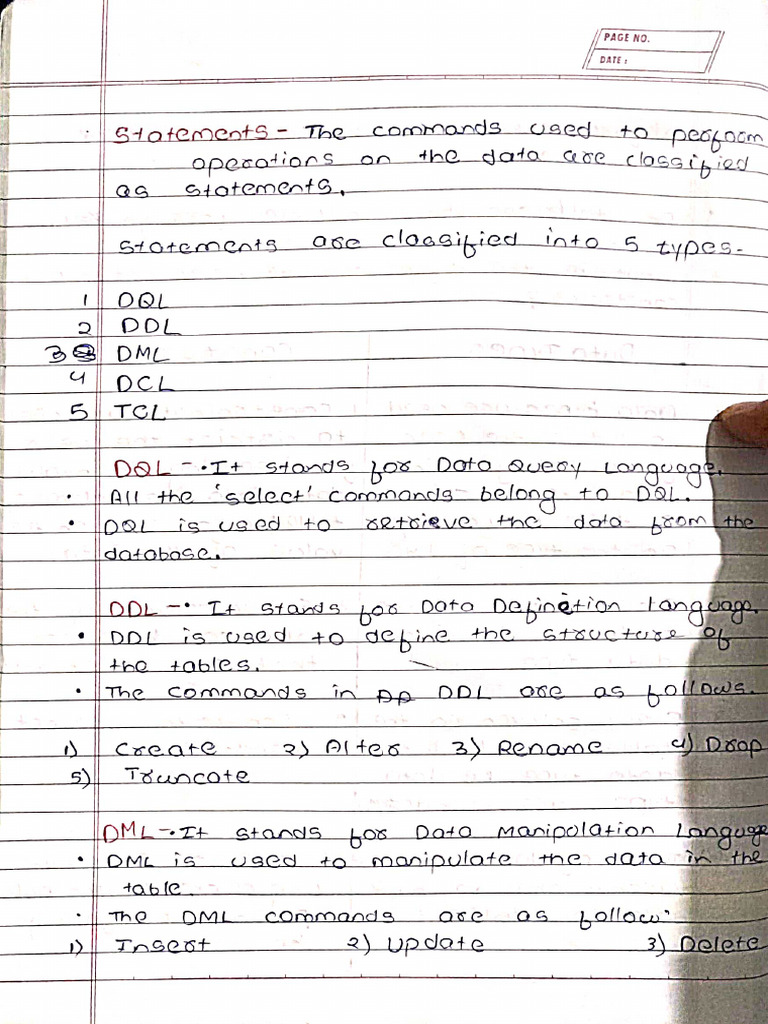 PAGE NO.
DATE :
Statements - The commands used to perform
operations on the data are classified
as statements.
Statements are classified into 5 types-
1 DQL
2 DDL
3 DML
4 DCL
5 TCL
DQL - • It stands for Data Query Language.
• All the 'select' commands belong to DQL.
• DQL is used to retrieve the data from the
database.
DDL - • It stands for Data Definetion language.
• DDL is used to define the structure of
the tables.
• The commands in DDL are as follows.
1) Create 2) Alter 3) Rename 4) Drop
5) Truncate
DML - • It stands for Data Manipolation Language
• DML is used to manipulate the data in the
table.
• The DML commands are as follow:
1) Insert 2) Update 3) Delete